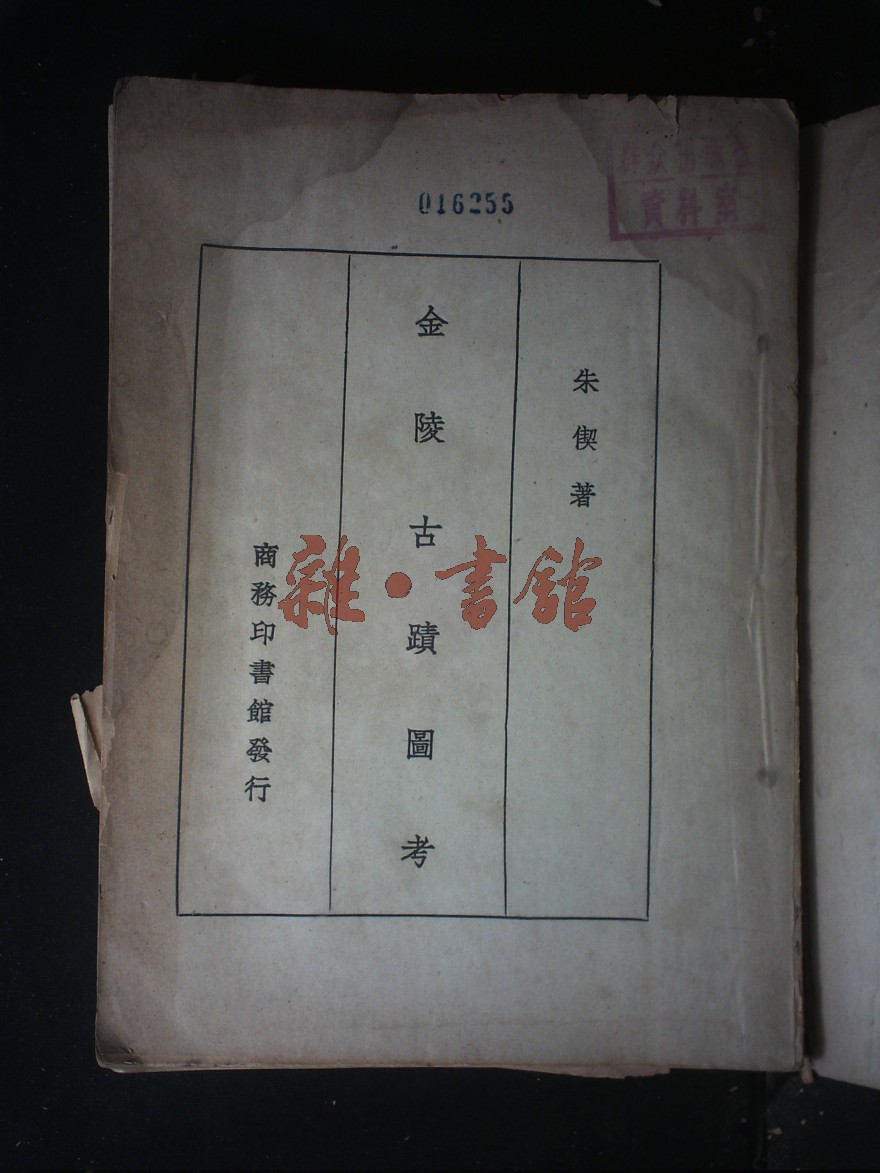 016255
群众出版社
資料室
朱偰著
金陵古蹟圖考
商務印書館發行
雜·書館